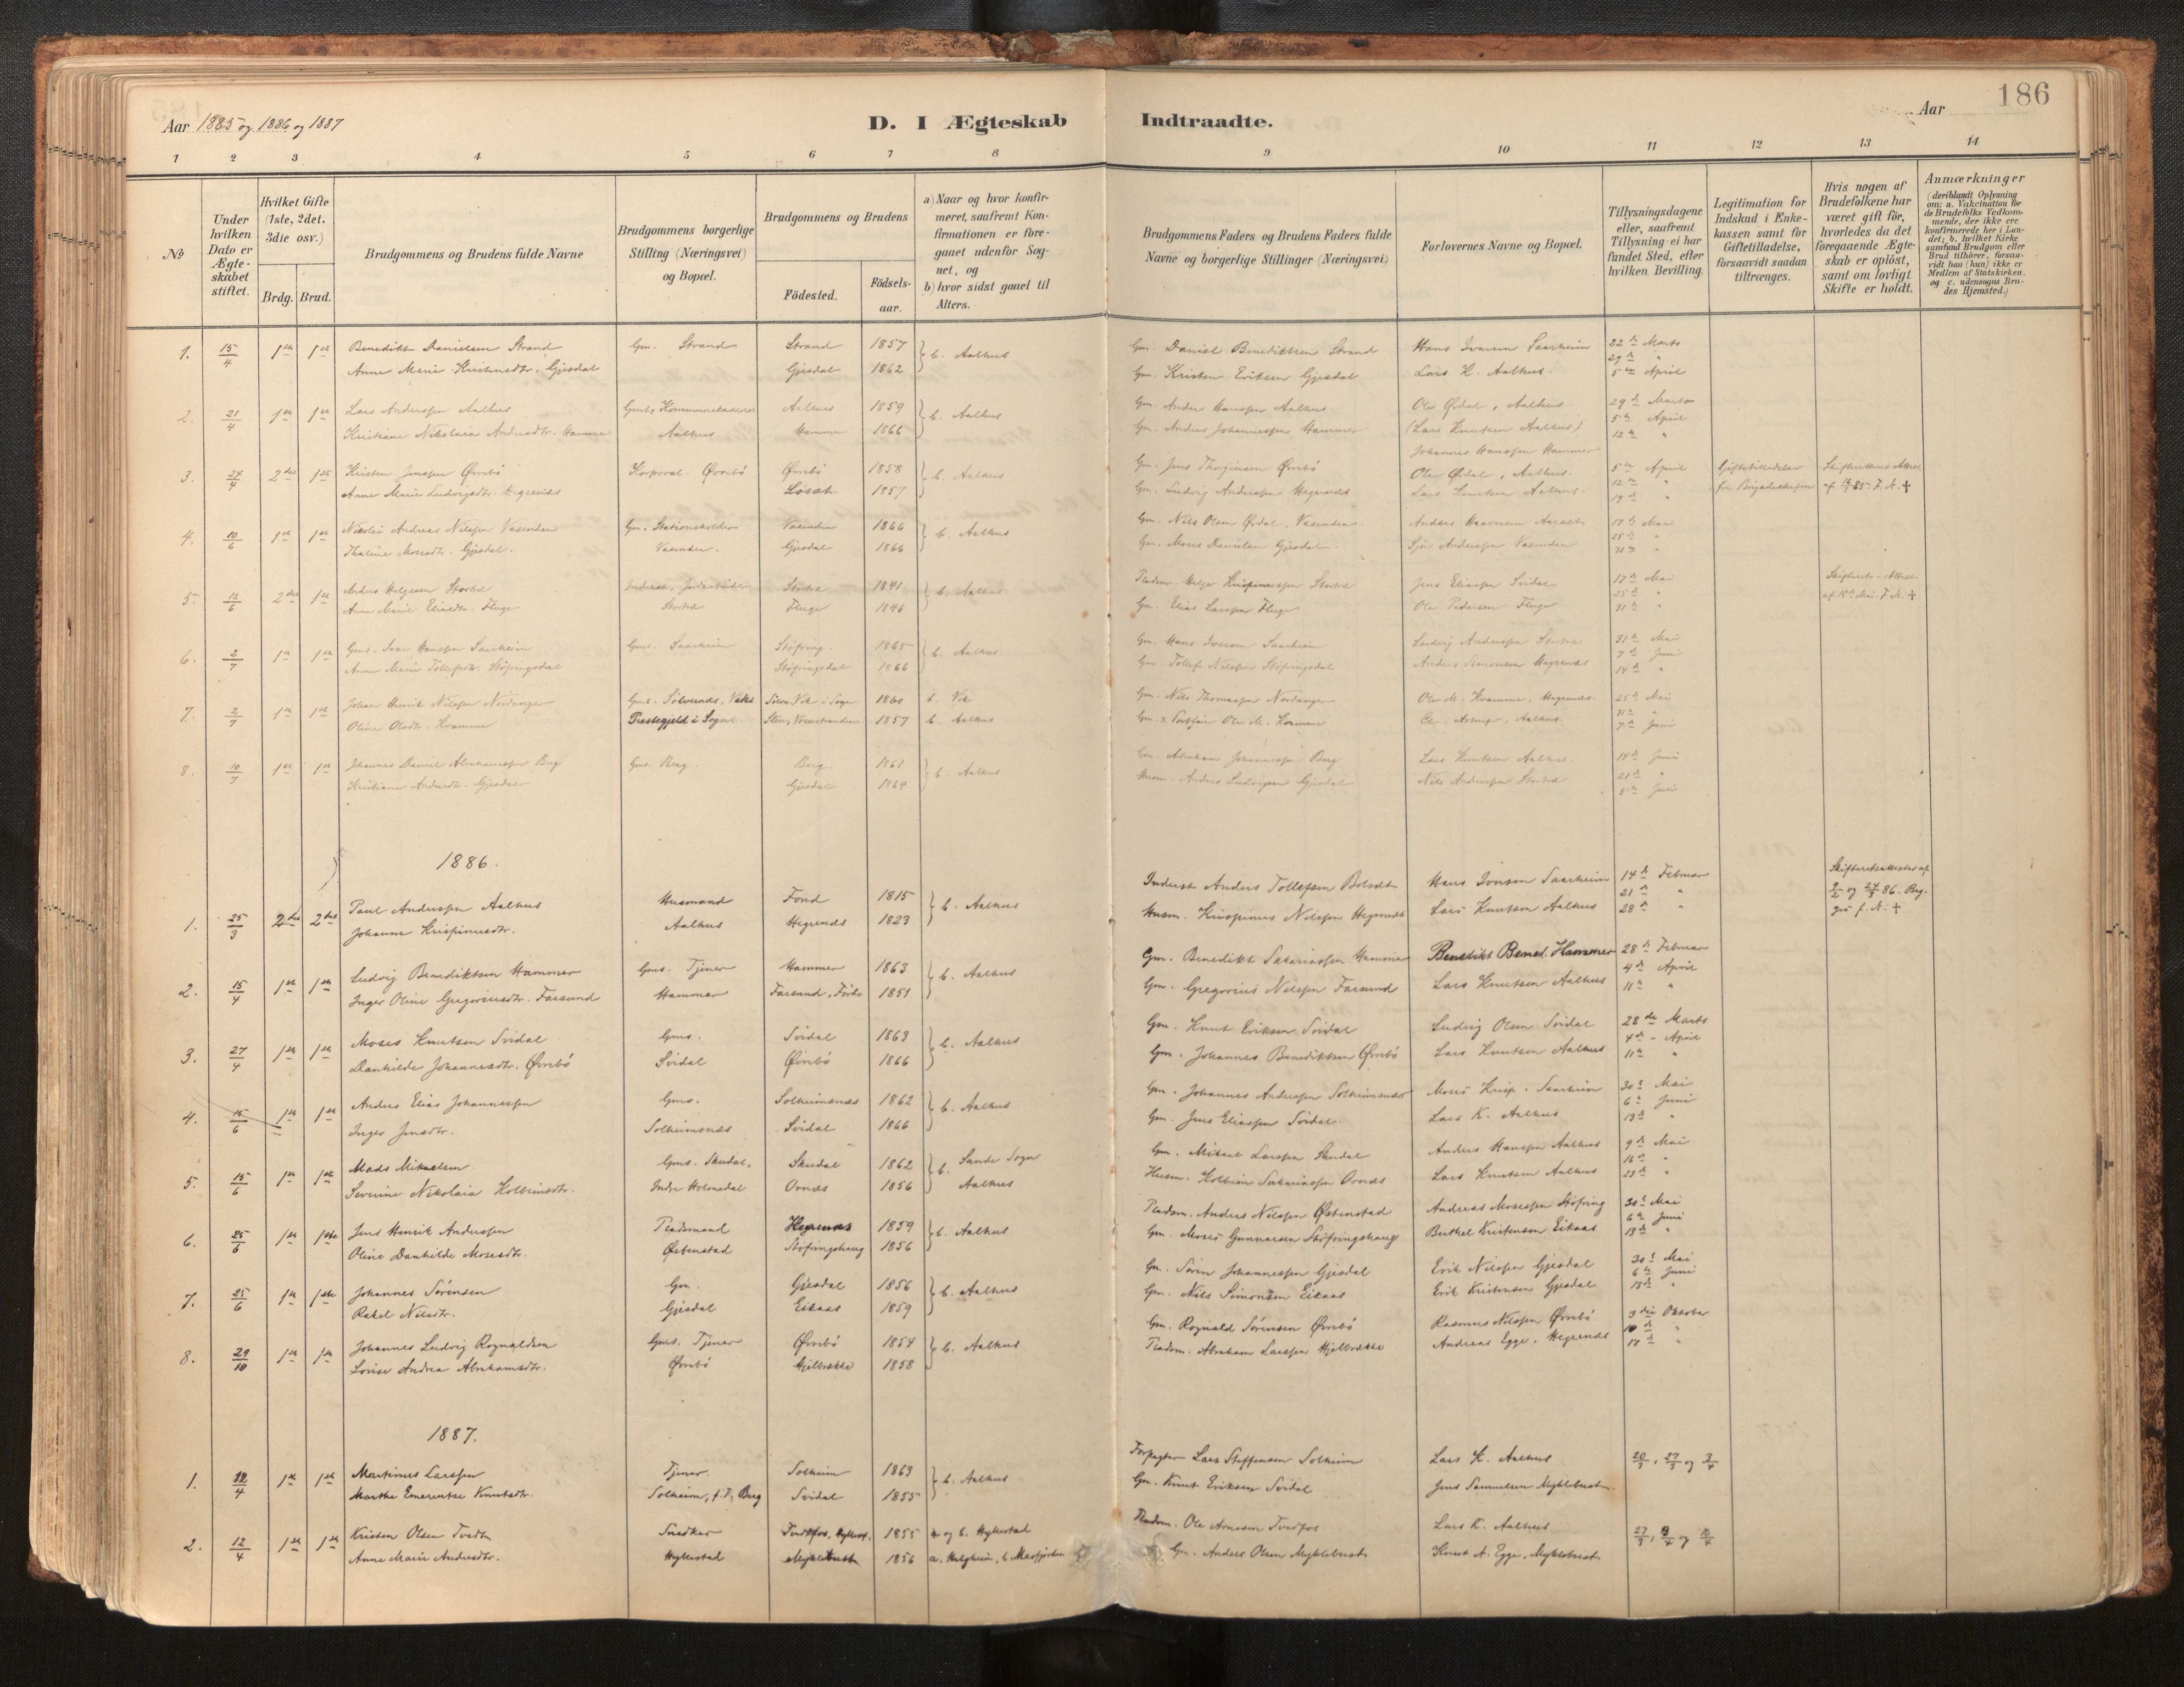 186
Aar 1885 og 1886 og 1887
D. I Ægteskab Indtraadte.
Aar
1 2 3 4 5 6 7 8 9 10 11 12 13 14
No
Under hvilken Dato er Ægteskabet stiftet.
Hvilket Gifte (1ste, 2det, 3die osv.)
Brdg. Brud.
Brudgommens og Brudens fulde Navne
Brudgommens borgerlige Stilling (Næringsvei) og Bopæl.
Brudgommens og Brudens
Födested. Födsels-aar.
a) Naar og hvor konfirmeret, saafremt Konfirmationen er foregaaet udenfor Sognet, og
b) hvor sidst gaaet til Alters.
Brudgommens Faders og Brudens Faders fulde Navne og borgerlige Stillinger (Næringsvei)
Forlovernes Navne og Bopæl.
Tillysningsdagene eller, saafremt Tillysning ei har fundet Sted, efter hvilken Bevilling.
Legitimation for Indskud i Enkekassen samt for Giftetilladelse, forsaavidt saadan tiltrænges.
Hvis nogen af Brudefolkene har været gift för, hvorledes da det foregaaende Ægteskab er oplöst, samt om lovligt Skifte er holdt.
Anmærkninger
(deriblandt Oplysning om: a. Vakcination for de Brudefolks Vedkommende, der ikke ere konfirmerede her i Landet; b. hvilket Kirkesamfund Brudgom eller Brud tilhörer, forsaavidt han (hun) ikke er Medlem af Statskirken. og c. udensogns Brudes Hjemsted.)
1. 15/4 1ste 1ste Benedikt Danielsen Strand Gm. Strand Strand 1857 } b. Aalhus Gm. Daniel Benediktsen Strand Hans Iversen Saarheim 22de Marts
29de "
Anne Marie Kristensdtr. Gjesdal Gjesdal 1862 Gm. Kristen Eriksen Gjesdal Lars K. Aalhus. 5te April
2. 21/4 1ste 1ste Lars Anderssen Aalhus Gms., Kommunekasserer Aalhus 1859 } b. Aalhus Gm. Anders Hanssen Aalhus Ole Ørdal, Aalhus 29de Marts
5te April
Kristiane Nikolaia Andersdtr. Hammer Aalhus Hammer 1866 Gm. Anders Johannessen Hammer (Lars Knutsen Aalhus) 12te "
Johannes Hanssen Hammer
3. 24/4 2det 1ste Kristen Jenssen Øvrebö Korporal. Øvrebö Øvrebö 1858 } b. Aalhus Gm. Jens Øvrebö Ole Ørdal, Aalhus. 5te April Giftetilladelse Skifterettens Attest
12te "
Anne Marie Ludvigsdtr. Hegrenæs Löset 1857 Gm. Ludvig Anderssen Hegrenæs Lars Knutsen Aalhus. 19de " fra Brigadechefen
4. 10/6 1ste 1ste Nikolai Andreas Nilssen Vasenden Gm. Stationsholder Vasenden 1866 } b. Aalhus Gm. Nils Olsen Ørdal, Vasenden Anders Aarset 17de Mai
25de "
Thaline Mosesdtr. Gjesdal. Vasenden. Gjesdal 1866 Gm. Moses Danielsen Gjesdal Sjur Anderssen Vasenden 31te "
5. 12/6 2det 1ste Anders Helgesen Storhd Inderst, Storhd 1841 } b. Aalhus Pladsm. Helge Krispinussen Jens Eliassen Svidal 17de Mai Skifterets-Attest
25de "
Anne Marie Eliasdtr. Fluge Fluge 1846 Gm. Elias Larssen Fluge Ole Pedersen Fluge 31te " af 15de Mai. F. A. +
6. 2/7 1ste 1ste Gms. Ivar Hanssen Saarheim Gms. Saarheim Stöfring 1865 } b. Aalhus Gm. Hans Iversen Saarheim Ludvig Anderssen 31te Mai
7de Juni
Anne Marie Tollefsdtr. Stöfringsdal Stöfringsdal 1866 Gm. Tollef Nilssen Stöfringsdal Anders Simonsen Hegrenæs 14de "
7. 2/7 1ste 1ste Johan Henrik Nilssen Nordanger Gms. Sölvernæs, Viks Vik i Sogn 1860 b. Vik Gm. Nils Thomassen Nordanger Ole M. Kvamme, Hegrenæs 25de Mai
31te "
Oline Olsdtr. Kvamme Prestegjeld i Sogn 1857 b. Aalhus Gm. Ole M. Kvamme Aalhus. 7de Juni
8. 10/7 1ste 1ste Johannes Daniel Abrahamssen Berg Gms. Berg. Berg. 1861 } b. Aalhus Gm. Abraham Johannessen Berg Lars Knutsen Aalhus. 14de Juni
21de "
Kristiane Andersdtr. Gjesdal Gjesdal 1864 Husm. Anders Ludvigsen Gjesdal Nils Anderssen 5te Juli
1886.
1. 25/3 2det 2det Paul Anderssen Aalhus Husmand Fond 1815 } b. Aalhus Inderst Anders Tollefsen Botndt Hans Iversen Saarheim 14de Februar Skifteretsattester af
21de "
Johanne Krispinusdtr. Aalhus Hegrenæs 1823 Husm. Krispinus Nilssen Hegrenæs Lars Knutsen Aalhus 28de " 2/2 og 27/3 86. F. A. +
2. 15/4 1ste 1ste Ludvig Benediktsen Hammer Gms. Tjener Hammer 1863 } b. Aalhus Gm. Benedikt Sakariassen Hammer Benedikt Bened. Hammer 28de Februar
4de April
Inger Oline Gregoriusdtr. Farsund Hammer Farsund, Förde 1851 Gm. Gregorius Nilssen Farsund Lars Knutsen Aalhus 11te "
3. 27/4 1ste 1ste Moses Knutsen Svidal Gms. Svidal 1863 } b. Aalhus Gm. Knut Eriksen Svidal Ludvig Olsen Svidal 28de Marts
4de - April
Dankilde Johannesdtr. Øvrebö Svidal Øvrebö 1866 Gm. Johannes Benediktsen Øvrebö Lars Knutsen Aalhus 11te "
4. 15/6 1ste 1ste Anders Elias Johannessen Gms. Solheimsnæs 1862 } b. Aalhus Gm. Johannes Anderssen Solheimsnæs Moses Krisp. Saarheim 30te Mai
6te Juni
Inger Jensdtr. Solheimsnæs Svidal 1866 Gm. Jens Eliassen Svidal Lars K. Aalhus 13de "
5. 15/6 1ste 1ste Mads Mikaelsen Gms. Skudal, Skudal 1862 } b. Sande Sogn Gm. Mikael Larssen Skudal Anders Hanssen Aalhus 9de Mai
16de "
Severine Nikolaia Kolbeinsdtr. Indre Holmedal Ornæs 1856 Aalhus Husm. Kolbein Sakariassen Ornæs Lars Knutsen Aalhus 23de "
6. 25/6 1ste 1ste Jens Henrik Anderssen Pladsmand Hegrenæs 1859 } b. Aalhus Pladsm. Anders Nilssen Østenstad Andreas Mosessen Stöfring 30te Mai
6te Juni
Oline Dankilde Mosesdtr. Østenstad Stöfringshaug 1856 Gm. Moses Gunnarsen Stöfringshaug Berthel Kristensen Eikaas 13de "
7. 25/6 1ste 1ste Johannes Sörensen Gm. Gjesdal 1856 } b. Aalhus Gm. Sören Johannessen Gjesdal Erik Nilssen Gjesdal 30te Mai
6te Juni
Rakel Nilsdtr. Gjesdal Eikaas 1859 Gm. Nils Simonsen Eikaas Erik Kristensen Gjesdal 13de "
8. 29/10 1ste 1ste Johannes Ludvig Rognaldsen Gms. Tjener Øvrebö 1854 } b. Aalhus Gm. Rognald Sörensen Øvrebö Rasmus Nilssen Øvrebö 3die Oktober
10de "
Lovise Andrea Abrahamsdtr. Øvrebö Hjelbrekke 1858 Pladsm. Abraham Larssen Hjelbrekke Andreas Egge, Hegrenæs 17de "
1887.
1. 12/4 1ste 1ste Martinus Larssen Tjener. Solheim 1863 } b. Aalhus Forpagter Lars Steffensen Solheim Lars K. Aalhus 20/3, 27/3 og 3/4
Marthe Emerentse Knutsdtr. Solheim, f. T. Berg Svidal 1855 Gm. Knut Eriksen Svidal Jens Samuelsen Myklebust
2. 12/4 1ste 1ste Kristen Olsen Tvedt Snedker Tvedtfos, Hyllest. 1855 a og b. Hyllestad Pladsm. Ole Arnesen Tvedfos Lars K. Aalhus 27/3, 3/4 og 10/4
Anne Marie Andersdtr. Hyllestad Myklebust 1856 a. Helgheim, b. Gm. Anders Olsen Myklebust Knut A. Egge, Myklebust